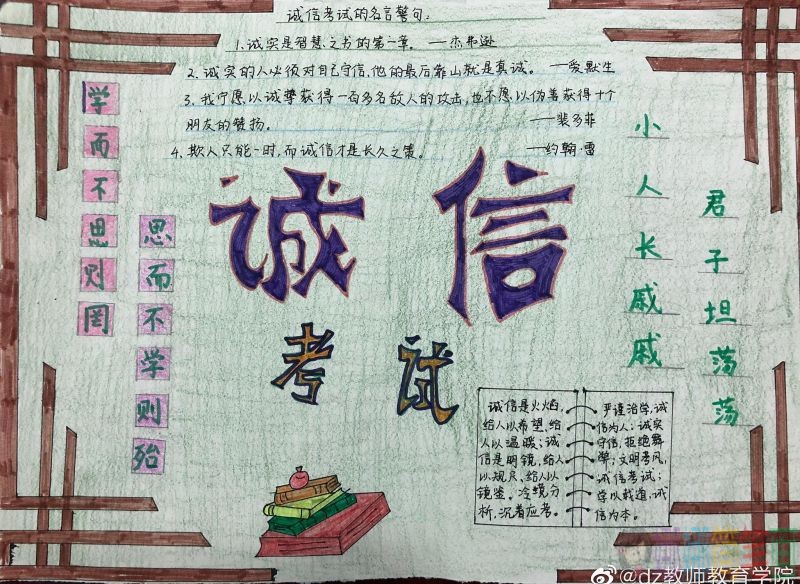 诚信考试的名言警句:
1.诚实是智慧之书的第一章。——杰弗逊
2.诚实的人必须对自己守信,他的最后靠山就是真诚。——爱默生
3.我宁愿以诚挚获得一百多名敌人的攻击,也不愿以伪善获得十个
朋友的赞扬。——裴多菲
4.欺人只能一时,而诚信才是长久之策。——约翰·雷
学而不思则罔
思而不学则殆
诚信
考试
君子坦荡荡
小人长戚戚
诚信是火焰,
给人以希望、给
人以温暖;诚
信是明镜,给人
以规尺、给人以
镜鉴。冷镜分
析,沉着应考。
严谨治学,诚
信为人;诚实
守信,拒绝舞
弊;文明考风,
诚信考试;
学以载道,诚
信为本。
@dz教师教育学院